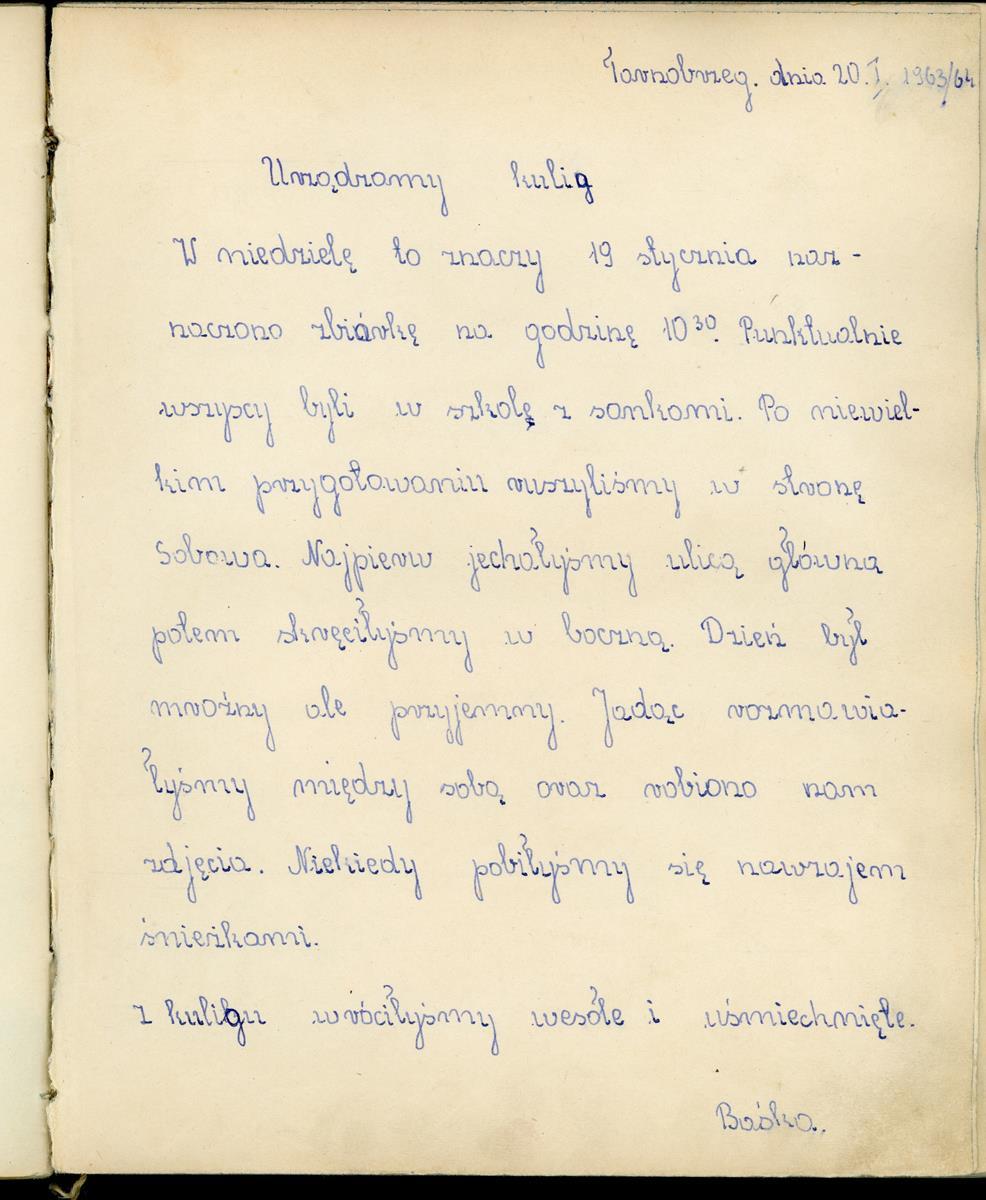 Tarnobrzeg. dnia 20.I. 1963/64
Urządzamy kulig
W niedzielę to znaczy 19 stycznia naz-
naczono zbiórkę na godzinę 10³⁰. Punktualnie
wszyscy byli w szkolę z sankami. Po niewiel-
kim przygotowaniu ruszyliśmy w stronę
Sobowa. Najpierw jechałyśmy ulicą główną
potem skręciłyśmy w boczną. Dzień był
mroźny ale przyjemny. Jadąc rozmawia-
łyśmy między sobą oraz robiono nam
zdjęcia. Niekiedy pobiłyśmy się nawzajem
śnieżkami.
z kuligu wróciłyśmy wesołe i uśmiechnięte.
Baśka.